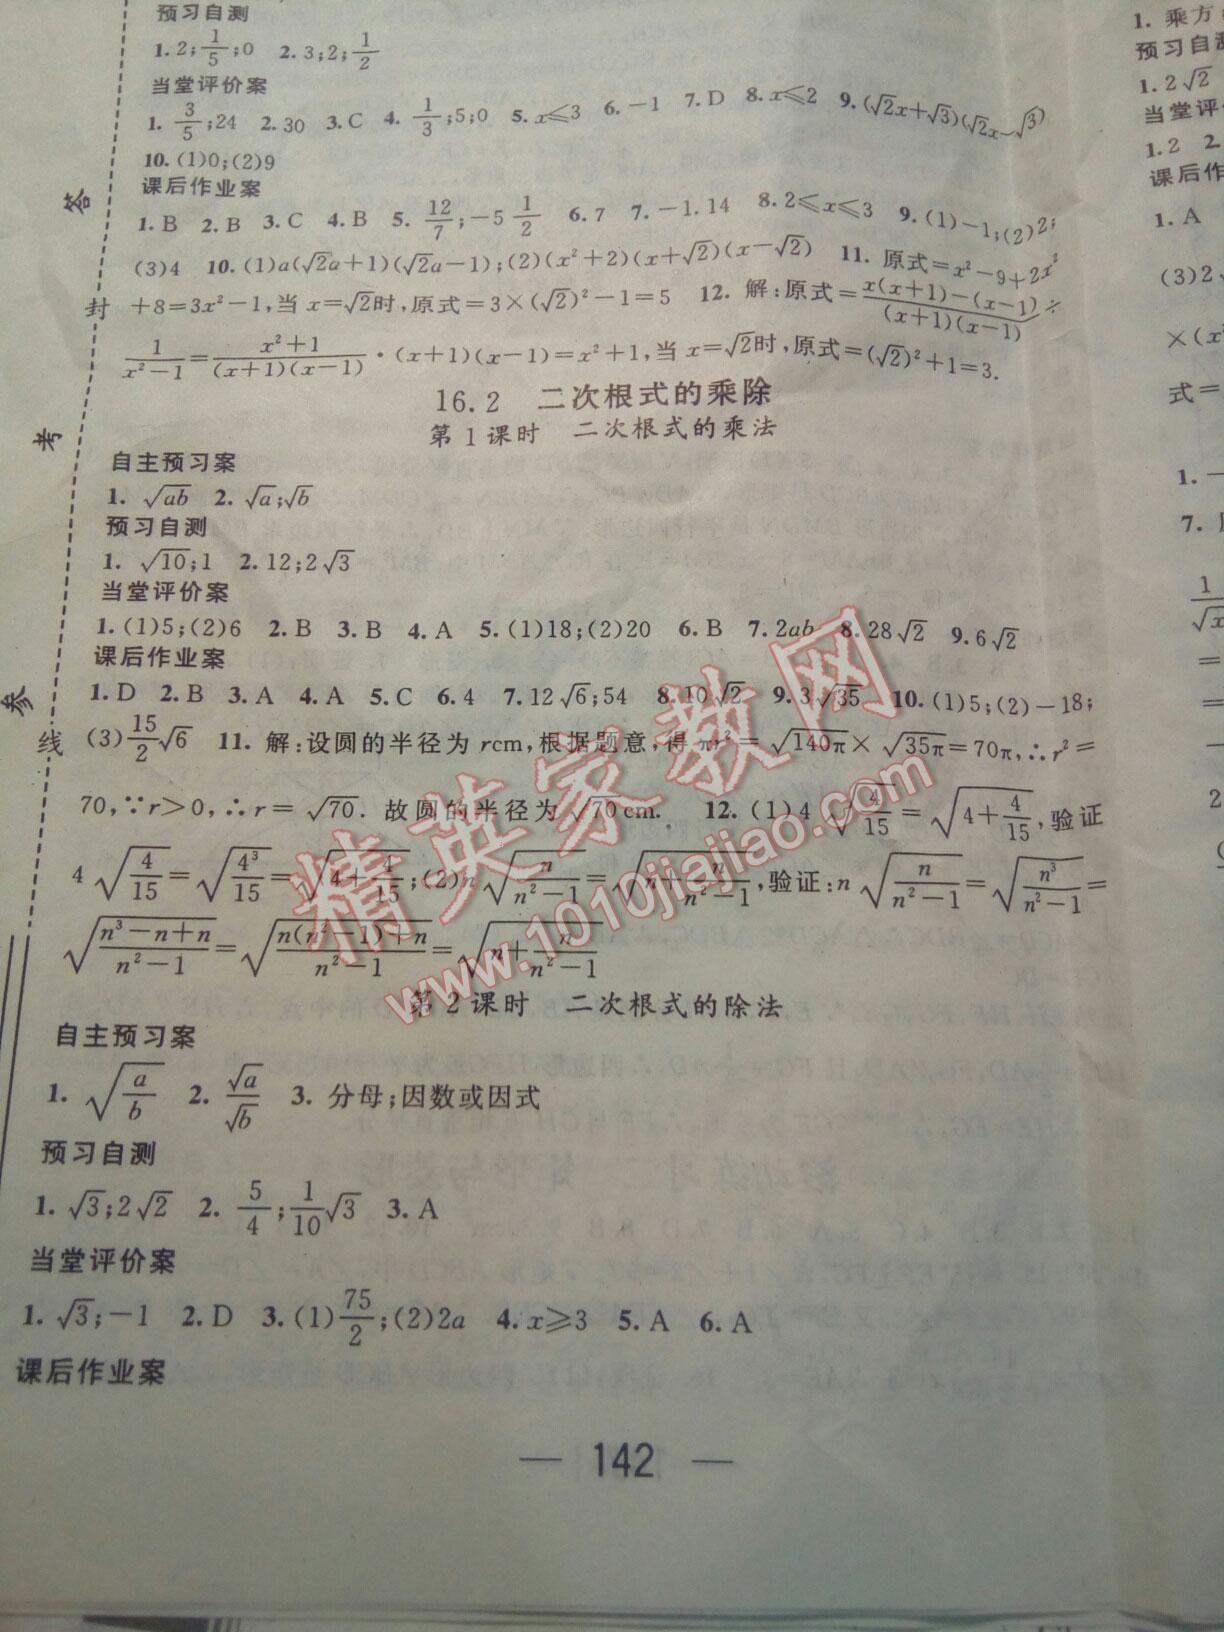 预习自测
1. 2; 1/5; 0 2. 3; 2; 1/2
当堂评价案
1. 3/5; 24 2. 30 3. C 4. 1/3; 5; 0 5. x≤3 6. −1 7. D 8. x≤2 9. (√2x+√3)(√2x−√3)
10. (1)0; (2)9
课后作业案
1. B 2. B 3. C 4. B 5. 12/7; −5 1/2 6. 7 7. −1.14 8. 2≤x≤3 9. (1)−1; (2)2;
(3)4 10. (1)a(√2a+1)(√2a−1); (2)(x²+2)(x+√2)(x−√2) 11. 原式=x²−9+2x²
+8=3x²−1,当 x=√2时,原式=3×(√2)²−1=5 12. 解:原式=[x(x+1)−(x−1)]/[(x+1)(x−1)]÷
1/(x²−1)=(x²+1)/[(x+1)(x−1)]·(x+1)(x−1)=x²+1,当 x=√2时,原式=(√2)²+1=3.
16.2 二次根式的乘除
第1课时 二次根式的乘法
自主预习案
1. √(ab) 2. √a; √b
预习自测
1. √10; 1 2. 12; 2√3
当堂评价案
1. (1)5; (2)6 2. B 3. B 4. A 5. (1)18; (2)20 6. B 7. 2ab 8. 28√2 9. 6√2
课后作业案
1. D 2. B 3. A 4. A 5. C 6. 4 7. 12√6; 54 8. 10√2 9. 3√35 10. (1)5; (2)−18;
(3)15/2√6 11. 解:设圆的半径为 rcm,根据题意,得 πr²=√(140π)×√(35π)=70π,∴r²=
70,∵r>0,∴r=√70. 故圆的半径为√70cm. 12. (1)4√(4/15)=√(4+4/15),验证
4√(4/15)=√(4³/15)=√(4+4/15); (2)n√(n/(n²−1))=√(n+n/(n²−1)),验证:n√(n/(n²−1))=√(n³/(n²−1))=
√((n³−n+n)/(n²−1))=√((n(n²−1)+n)/(n²−1))=√(n+n/(n²−1))
第2课时 二次根式的除法
自主预习案
1. √(a/b) 2. √a/√b 3. 分母;因数或因式
预习自测
1. √3; 2√2 2. 5/4; 1/10√3 3. A
当堂评价案
1. √3; −1 2. D 3. (1)75/2; (2)2a 4. x≥3 5. A 6. A
课后作业案
— 142 —
答
封
考
参
线
精英家教网
www.1010jiajiao.com
1. 乘方
预习自测
1. 2√2
当堂评价
1. 2 2.
课后作
1. A
(3)2
×(x
式=
1. −
7.